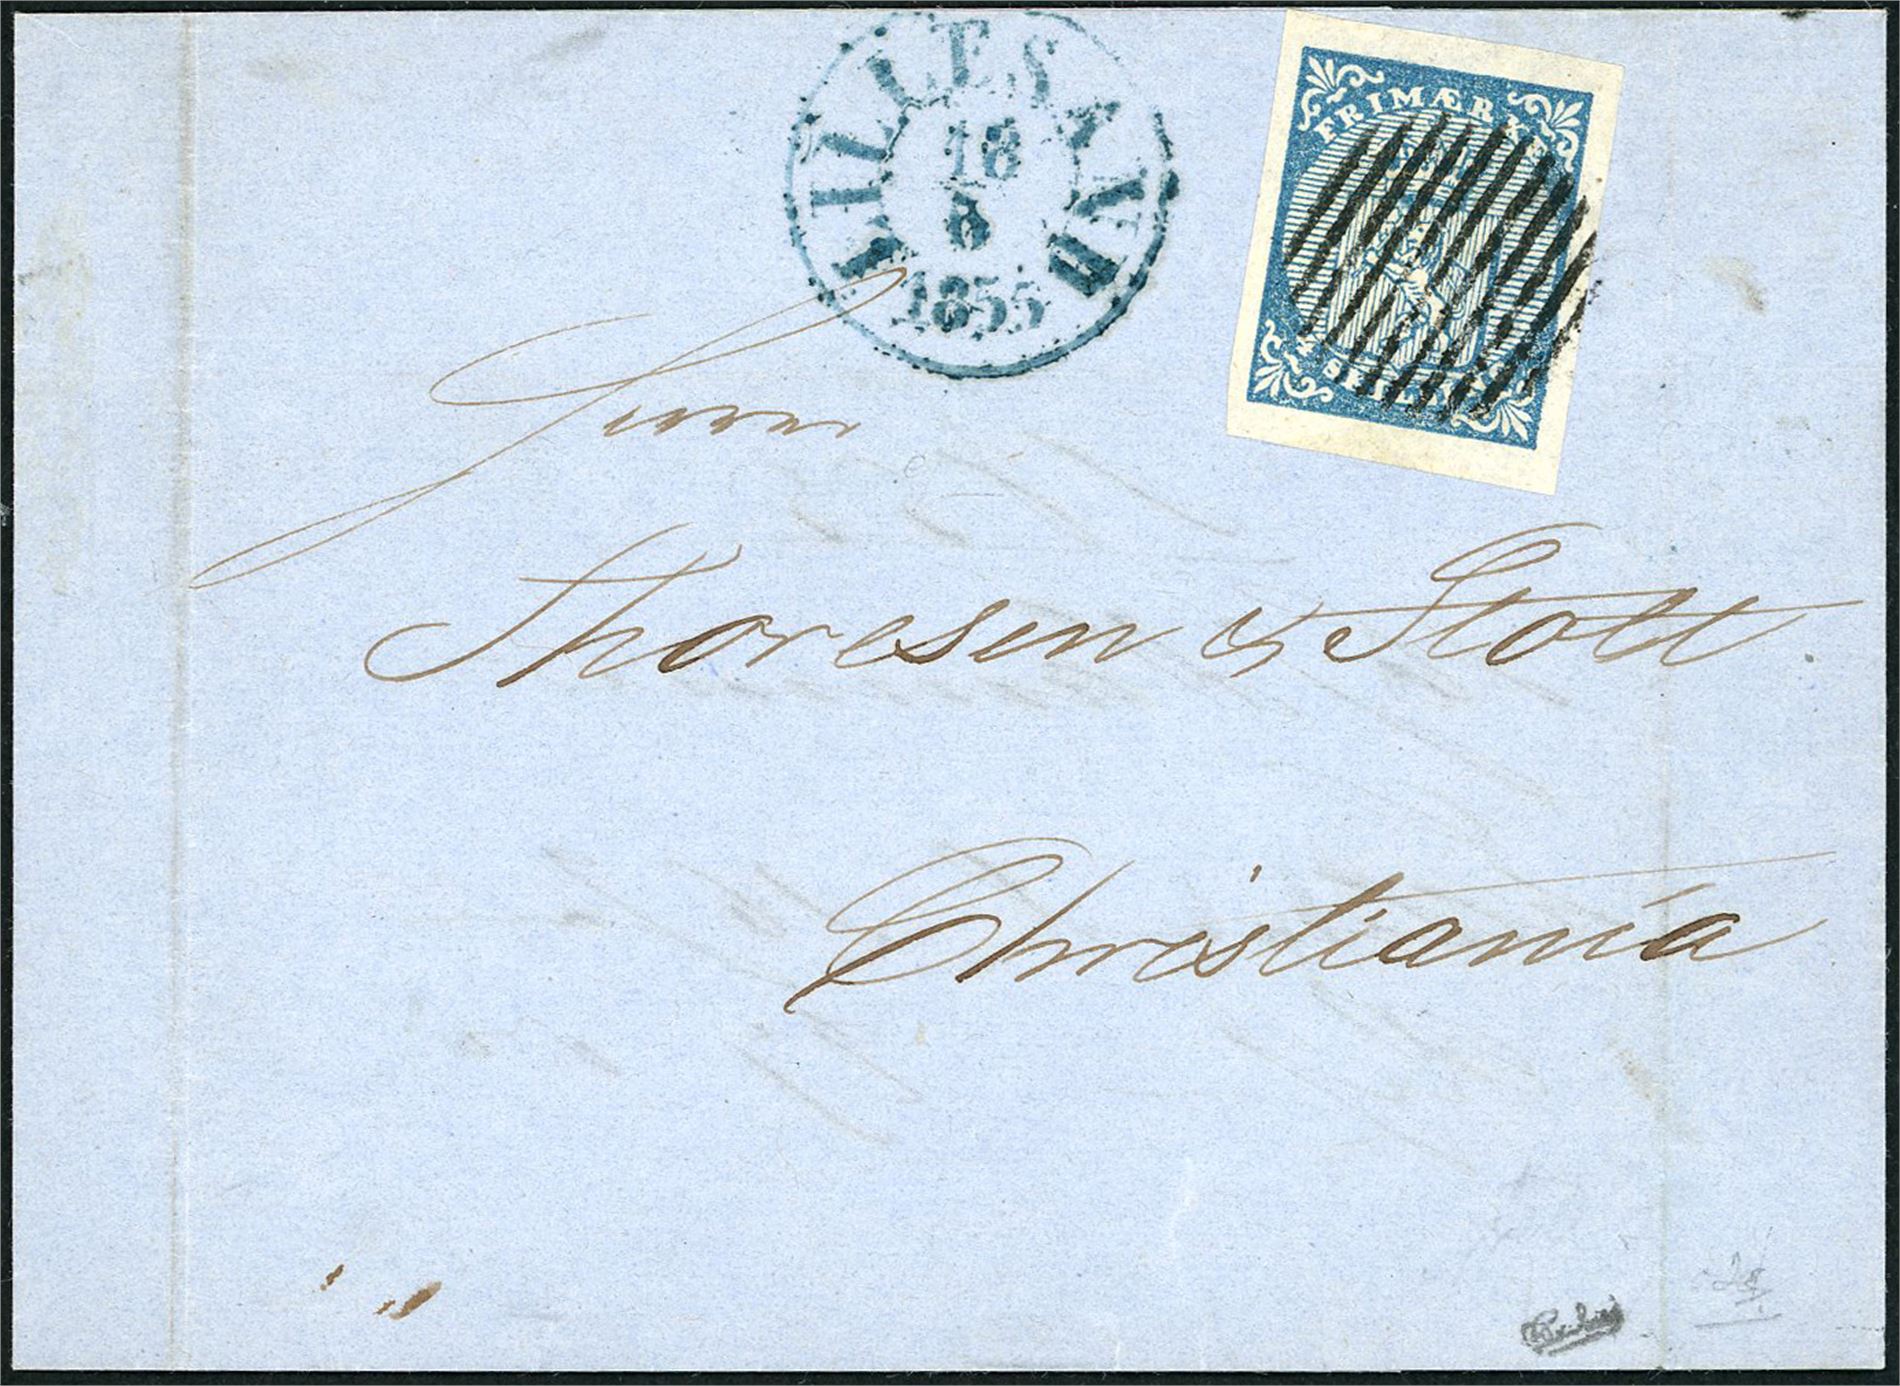 LILLESAND
18
6
1855
FRIMÆRKE
4 SKILLING
Herrer
Thoresen & Stott.
Christiania